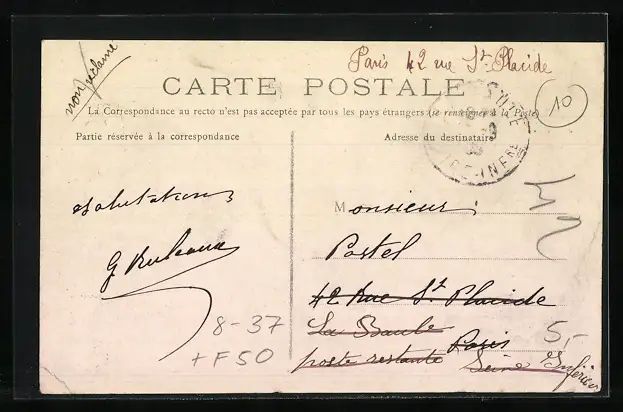 non réclamé
Paris 42 rue St. Placide
CARTE POSTALE
10
La Correspondance au recto n'est pas acceptée par tous les pays étrangers (se renseigner à la Poste)
Partie réservée à la correspondance
Adresse du destinataire
salutations
Monsieur
Postel
42 Rue St Placide
La Baule Paris
poste restante Seine Inférieure
8-37
+F50
5,-